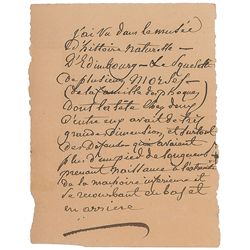 J'ai Vu dans le musée
d'histoire naturelle —
d'Edimbourg — Le squelette
de plusieurs Morses
(de la famille des phoques)
dont la tête chez deux
d'entre eux avait de très
grande dimension, et surtout
des Défenses qui avaient
plus d'un pied de longueur
prenant naissance à l'extrémité
de la machoire inférieure et
se recourbant en bas et
en arrière